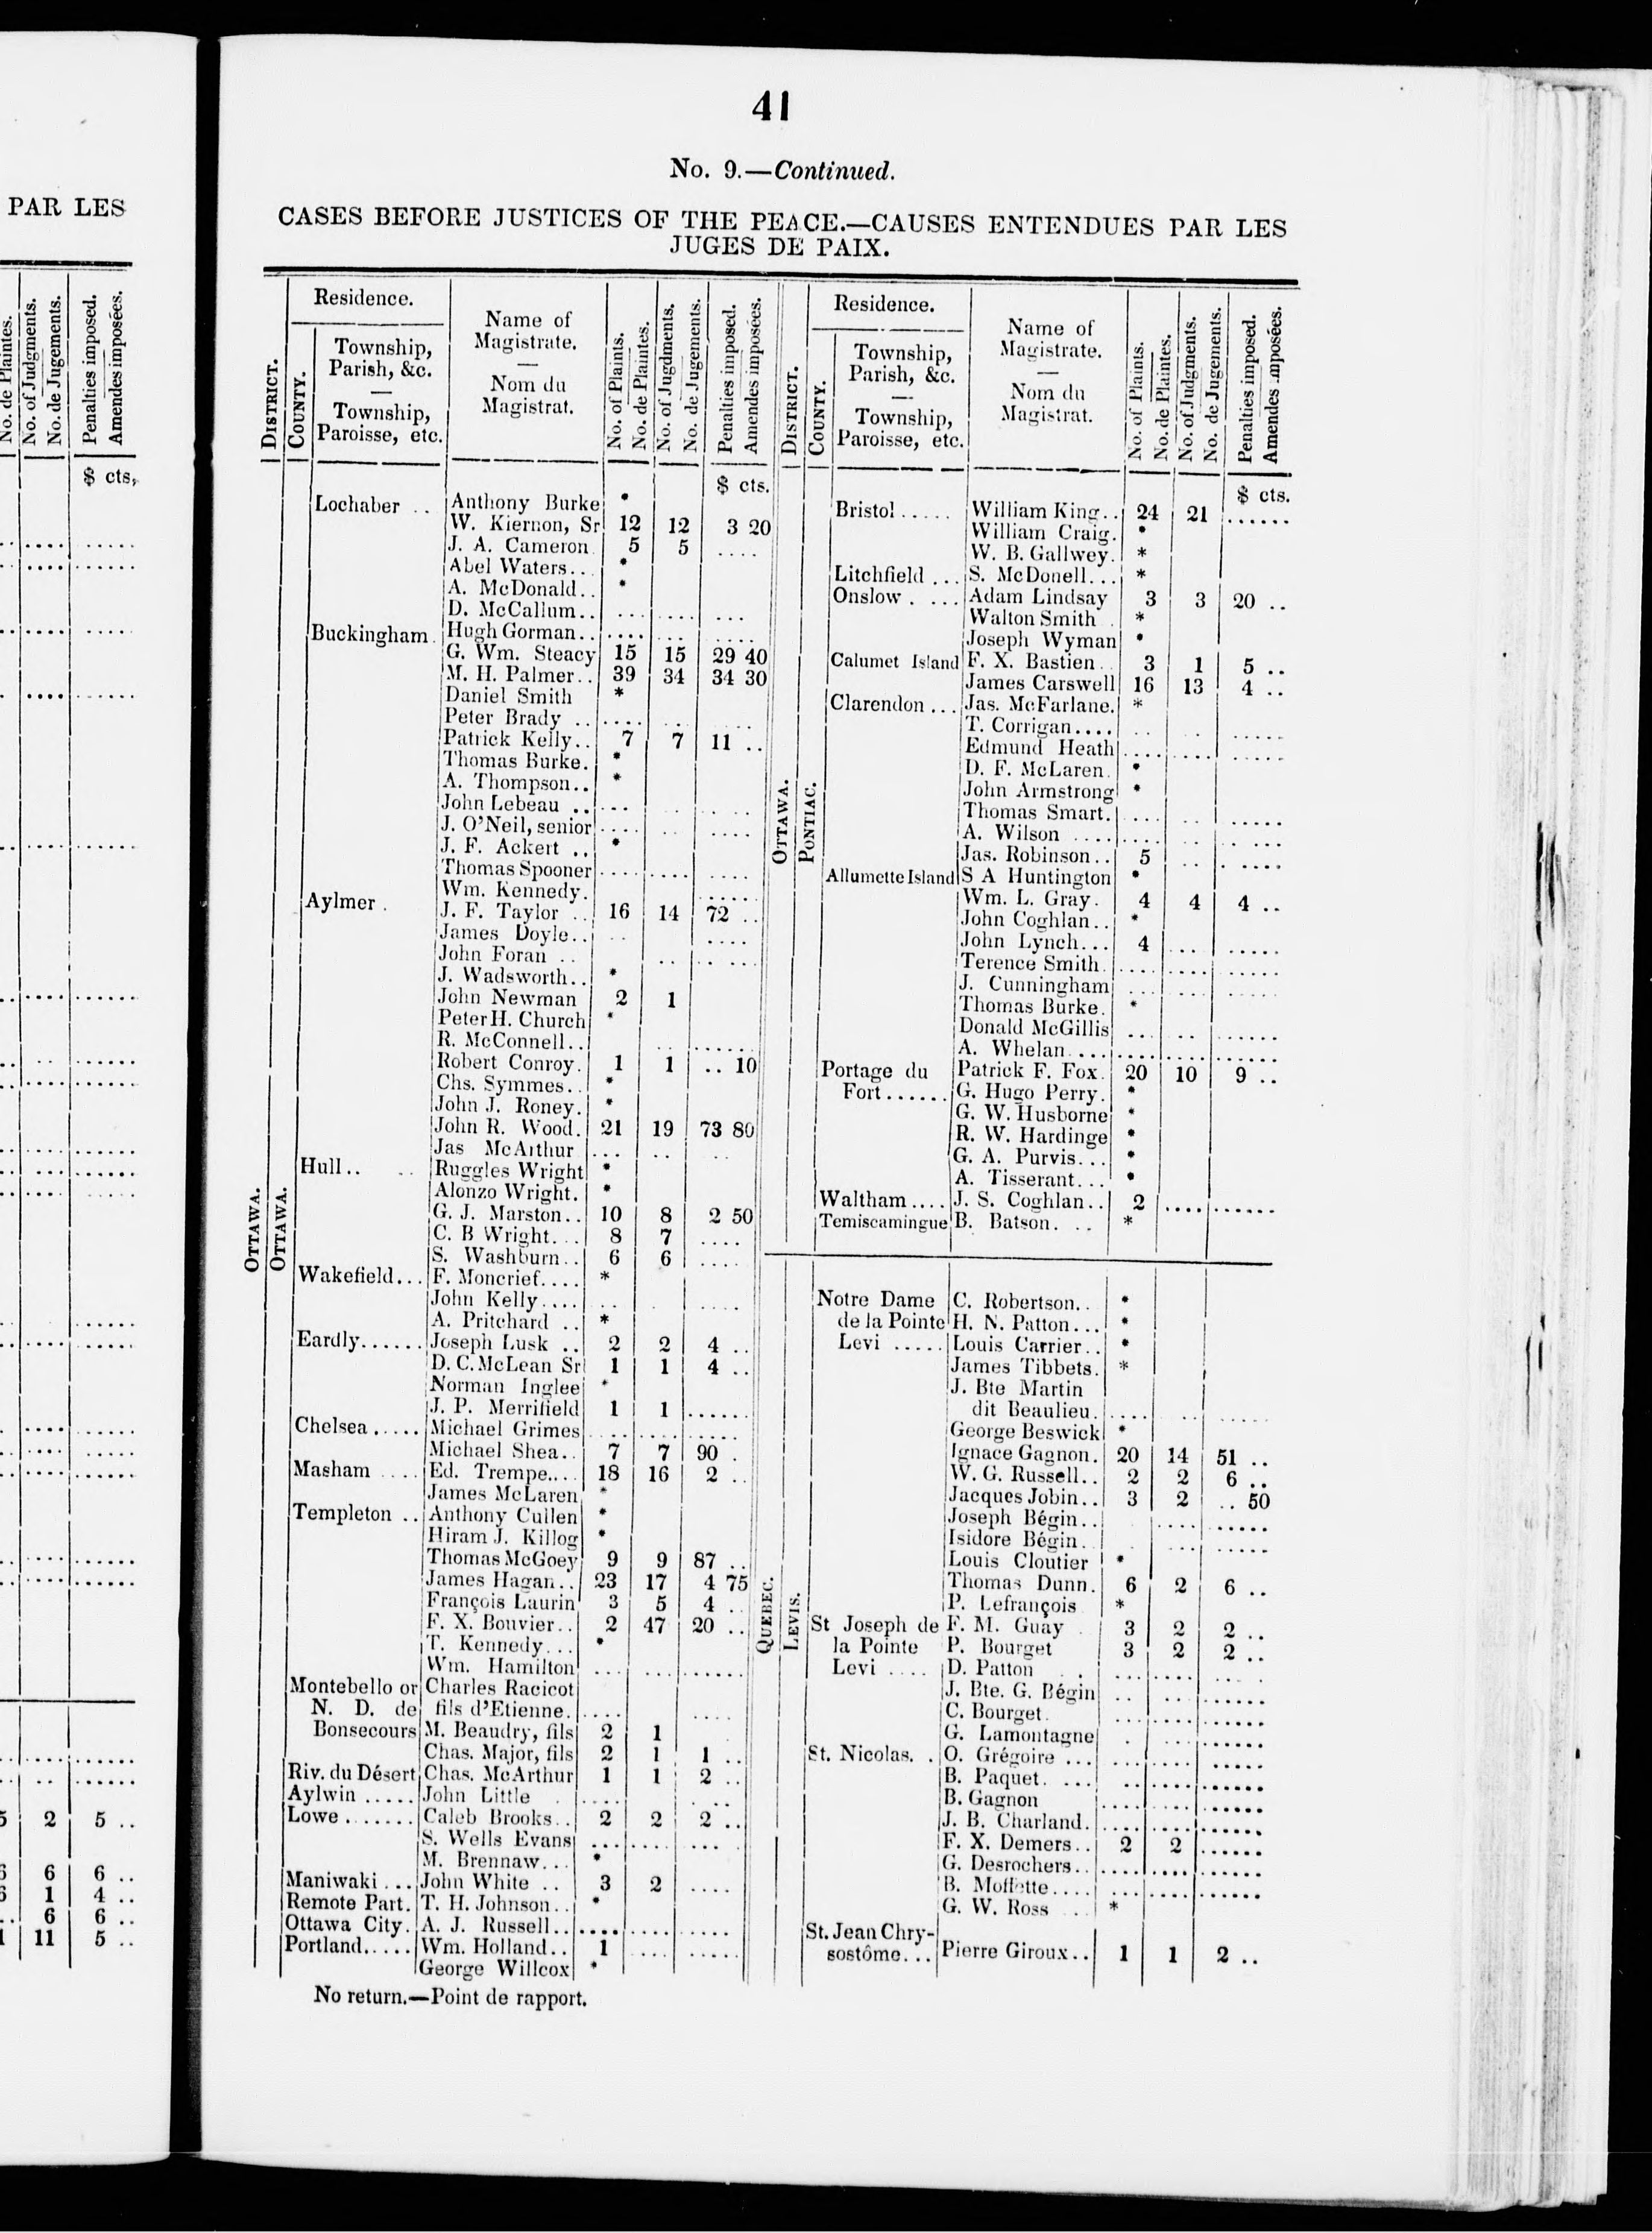 41
No. 9.—Continued.
CASES BEFORE JUSTICES OF THE PEACE.—CAUSES ENTENDUES PAR LES
JUGES DE PAIX.
DISTRICT.
COUNTY.
Residence.
Township,
Parish, &c.
—
Township,
Paroisse, etc.
Name of
Magistrate.
—
Nom du
Magistrat.
No. of Plaints.
No. de Plaintes.
No. of Jugdments.
No. de Jugements.
Penalties imposed.
Amendes imposées.
$ cts.
OTTAWA.
OTTAWA.
Lochaber .. Anthony Burke *
W. Kiernon, Sr 12 12 3 20
J. A. Cameron 5 5 ....
Abel Waters... *
A. McDonald.. *
D. McCallum.. ... .... ...
Buckingham. Hugh Gorman.. .... ... ....
G. Wm. Steacy 15 15 29 40
M. H. Palmer.. 39 34 34 30
Daniel Smith *
Peter Brady .. .... .. ....
Patrick Kelly.. 7 7 11 ..
Thomas Burke. *
A. Thompson.. *
John Lebeau .. ... .. .. ..
J. O'Neil, senior .... .. ....
J. F. Ackert .. *
Thomas Spooner .... .... ....
Wm. Kennedy. ......
Aylmer . J. F. Taylor .. 16 14 72 ..
James Doyle.. .. ....
John Foran .. .. .. ...
J. Wadsworth.. *
John Newman 2 1
Peter H. Church *
R. McConnell.. .. ......
Robert Conroy. 1 1 .. 10
Chs. Symmes.. *
John J. Roney. *
John R. Wood. 21 19 73 80
Jas McArthur ... .. ..
Hull.. .. Ruggles Wright *
Alonzo Wright. *
G. J. Marston.. 10 8 2 50
C. B Wright... 8 7 ....
S. Washburn.. 6 6 ....
Wakefield... F. Moncrief.... *
John Kelly.... .. . ....
A. Pritchard .. *
Eardly...... Joseph Lusk .. 2 2 4 ..
D. C. McLean Sr 1 1 4 ..
Norman Inglee *
J. P. Merrifield 1 1 ......
Chelsea ..... Michael Grimes .... .... ......
Michael Shea.. 7 7 90 .
Masham .... Ed. Trempe.... 18 16 2 ..
James McLaren *
Templeton .. Anthony Cullen *
Hiram J. Killog *
Thomas McGoey 9 9 87 ..
James Hagan.. 23 17 4 75
François Laurin 3 5 4 ..
F. X. Bouvier.. 2 47 20 ..
T. Kennedy... *
Wm. Hamilton ... .........
Montebello or Charles Racicot
N. D. de fils d'Etienne. .... ....
Bonsecours M. Beaudry, fils 2 1
Chas. Major, fils 2 1 1 ..
Riv. du Désert Chas. McArthur 1 1 2 ..
Aylwin ..... John Little . .... . ..
Lowe ....... Caleb Brooks.. 2 2 2 ..
S. Wells Evans ... .... ....
M. Brennaw... *
Maniwaki ... John White .. 3 2 ....
Remote Part. T. H. Johnson.. *
Ottawa City. A. J. Russell.. .... .... .....
Portland..... Wm. Holland.. 1 .... ......
George Willcox *
No return.—Point de rapport.
DISTRICT.
COUNTY.
Residence.
Township,
Parish, &c.
—
Township,
Paroisse, etc.
Name of
Magistrate.
—
Nom du
Magistrat.
No. of Plaints.
No. de Plaintes.
No. of Judgments.
No. de Jugements.
Penalties imposed.
Amendes imposées.
$ cts.
OTTAWA.
PONTIAC.
Bristol ..... William King.. 24 21 ......
William Craig. *
W. B. Gallwey. *
Litchfield ... S. McDonell... *
Onslow . ... Adam Lindsay 3 3 20 ..
Walton Smith . *
Joseph Wyman *
Calumet Island F. X. Bastien.. 3 1 5 ..
James Carswell 16 13 4 ..
Clarendon ... Jas. McFarlane. *
T. Corrigan.... .. .. .....
Edmund Heath .... .... .....
D. F. McLaren. *
John Armstrong *
Thomas Smart. .... .. .....
A. Wilson .... .... .. . ...
Jas. Robinson.. 5 .. . ....
Allumette Island S A Huntington *
Wm. L. Gray. 4 4 4 ..
John Coghlan.. *
John Lynch... 4 ... .....
Terence Smith. .... .... .....
J. Cunningham ... ... .....
Thomas Burke. *
Donald McGillis ... .. ......
A. Whelan .... .... .... ......
Portage du Patrick F. Fox. 20 10 9 ..
Fort...... G. Hugo Perry. *
G. W. Husborne *
R. W. Hardinge *
G. A. Purvis... *
A. Tisserant... *
Waltham .... J. S. Coghlan.. 2 .... ......
Temiscamingue B. Batson. .. *
QUEBEC.
LEVIS.
Notre Dame C. Robertson.. *
de la Pointe H. N. Patton... *
Levi ..... Louis Carrier.. *
James Tibbets. *
J. Bte Martin
dit Beaulieu. .... .. .....
George Beswick *
Ignace Gagnon. 20 14 51 ..
W. G. Russell.. 2 2 6 ..
Jacques Jobin.. 3 2 .. 50
Joseph Bégin.. . .... ......
Isidore Bégin.. . ... ......
Louis Cloutier *
Thomas Dunn. 6 2 6 ..
P. Lefrançois *
St Joseph de F. M. Guay . 3 2 2 ..
la Pointe P. Bourget 3 2 2 ..
Levi .... D. Patton . .... .... ... .
J. Bte. G. Bégin .. .... ......
C. Bourget. ... .... ......
G. Lamontagne . .... ......
St. Nicolas. . O. Grégoire ... ... .... .....
B. Paquet. ... .. .... ......
B. Gagnon .... .... ......
J. B. Charland. .... .... ......
F. X. Demers.. 2 2 ......
G. Desrochers.. .... .... ......
B. Moffette.... ... .... ......
G. W. Ross ... *
St. Jean Chry-
sostôme... Pierre Giroux.. 1 1 2 ..
PAR LES
No. de Plaintes.
No. of Judgments.
No. de Jugements.
Penalties imposed.
Amendes imposées.
$ cts.
5 2 5 ..
6 6 6 ..
6 1 4 ..
.. 6 6 ..
1 11 5 ..